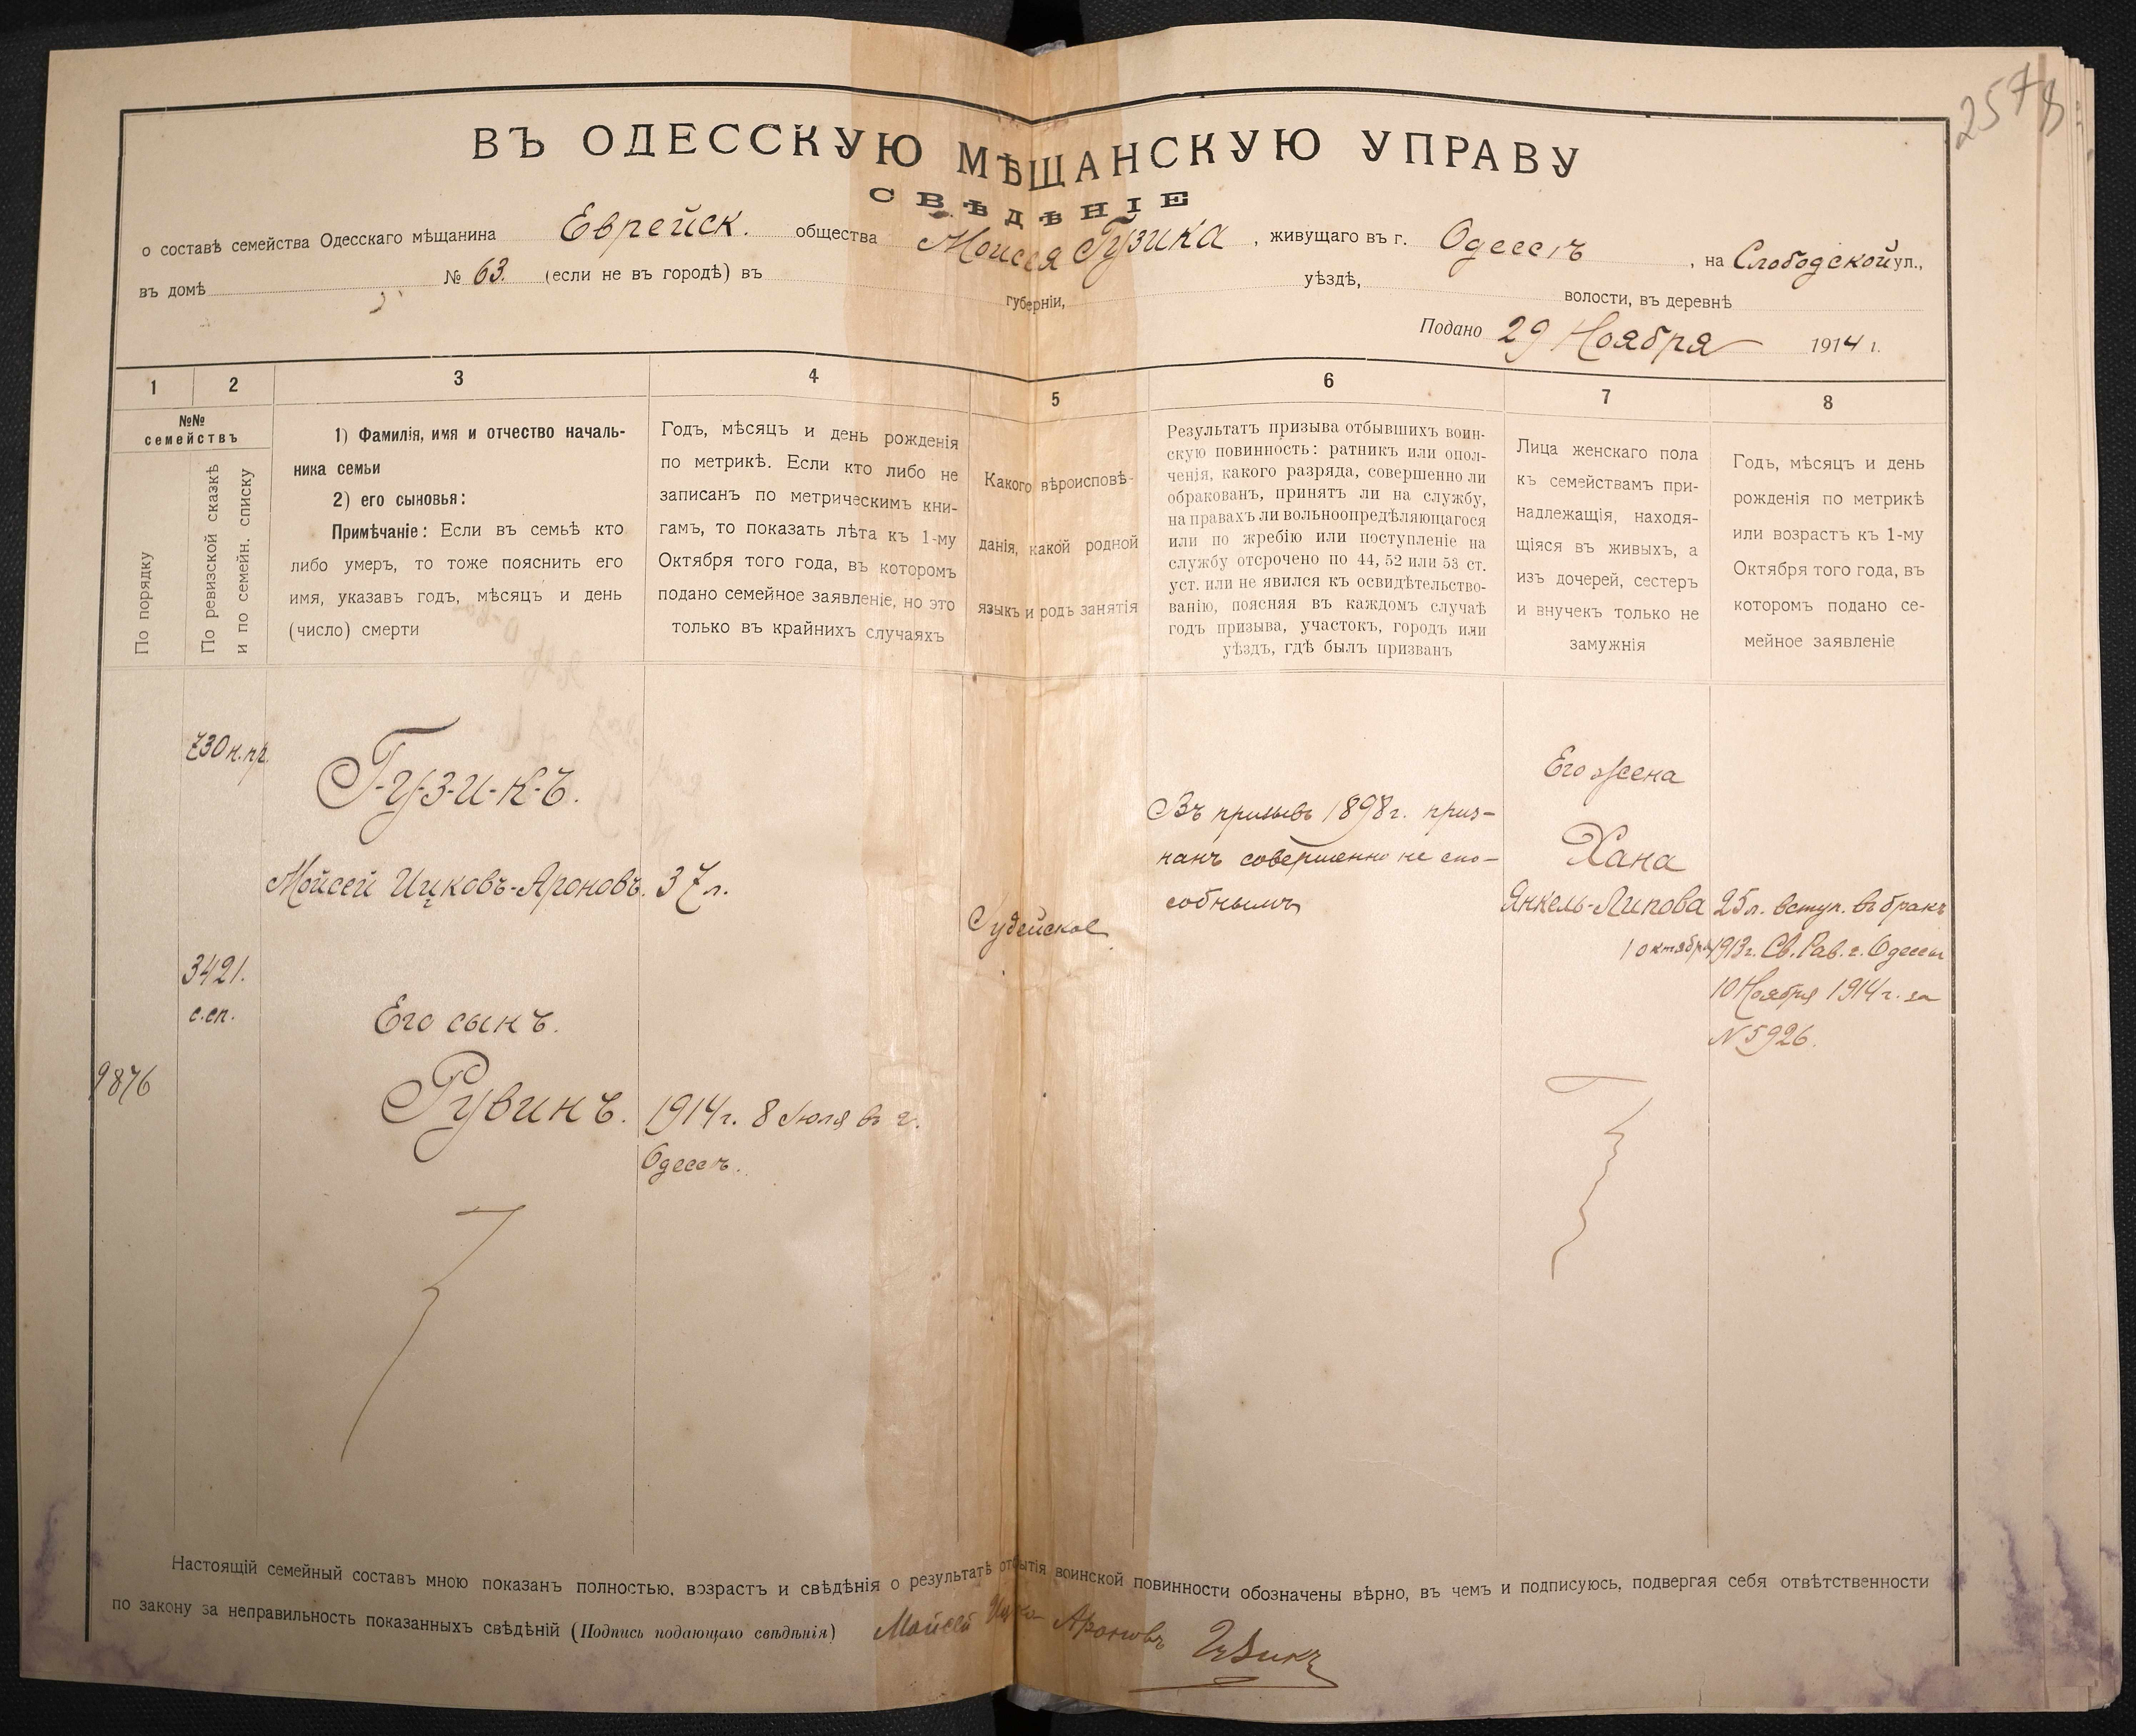 2578
ВЪ ОДЕССКУЮ МѢЩАНСКУЮ УПРАВУ
СВѢДѢНІЕ
о составѣ семейства Одесскаго мѣщанина Еврейск. общества Моисея Гузика, живущаго въ г. Одессѣ, на Слободской ул.,
въ домѣ № 63. (если не въ городѣ) въ губерніи, уѣздѣ, волости, въ деревнѣ
Подано 29 Ноября 1914 г.
1 2 3 4 5 6 7 8
№№
семействъ
По порядку
По ревизской сказкѣ
и по семейн. списку
1) Фамилія, имя и отчество началь-
ника семьи
2) его сыновья:
Примѣчаніе: Если въ семьѣ кто
либо умеръ, то тоже пояснить его
имя, указавъ годъ, мѣсяцъ и день
(число) смерти
Годъ, мѣсяцъ и день рожденія
по метрикѣ. Если кто либо не
записанъ по метрическимъ кни-
гамъ, то показать лѣта къ 1-му
Октября того года, въ которомъ
подано семейное заявленіе, но это
только въ крайнихъ случаяхъ
Какого вѣроисповѣ-
данія, какой родной
языкъ и родъ занятія
Результатъ призыва отбывшихъ воин-
скую повинность: ратникъ или опол-
ченія, какого разряда, совершенно ли
обракованъ, принятъ ли на службу,
на правахъ ли вольноопредѣляющагося
или по жребію или поступленіе на
службу отсрочено по 44, 52 или 53 ст.
уст. или не явился къ освидѣтельство-
ванію, поясняя въ каждомъ случаѣ
годъ призыва, участокъ, городъ или
уѣздъ, гдѣ былъ призванъ
Лица женскаго пола
къ семействамъ при-
надлежащія, находя-
щіяся въ живыхъ, а
изъ дочерей, сестеръ
и внучекъ только не
замужнія
Годъ, мѣсяцъ и день
рожденія по метрикѣ
или возрастъ къ 1-му
Октября того года, въ
которомъ подано се-
мейное заявленіе
730 н. пр.
3421.
с.сп.
9876
Г-у-з-и-к-ъ.
Мойсей Ицковъ-Ароновъ.
Его сынъ.
Рувинъ.
37 л.
1914 г. 8 Іюля въ г.
Одессѣ.
Іудейское
Въ призывъ 1898 г. приз-
нанъ совершенно не спо-
собнымъ
Его жена
Хана
Янкель-Липова
25 л. вступ. въ бракъ
1 октября 1913 г. Св. Рав. г. Одессы
10 Ноября 1914 г. за
N 5926.
Настоящій семейный составъ мною показанъ полностью, возрастъ и свѣдѣнія о результатѣ отбытія воинской повинности обозначены вѣрно, въ чемъ и подписуюсь, подвергая себя отвѣтственности
по закону за неправильность показанныхъ свѣдѣній (Подпись подающаго свѣдѣнія) Мойсей Ицко Ароновъ Гузикъ